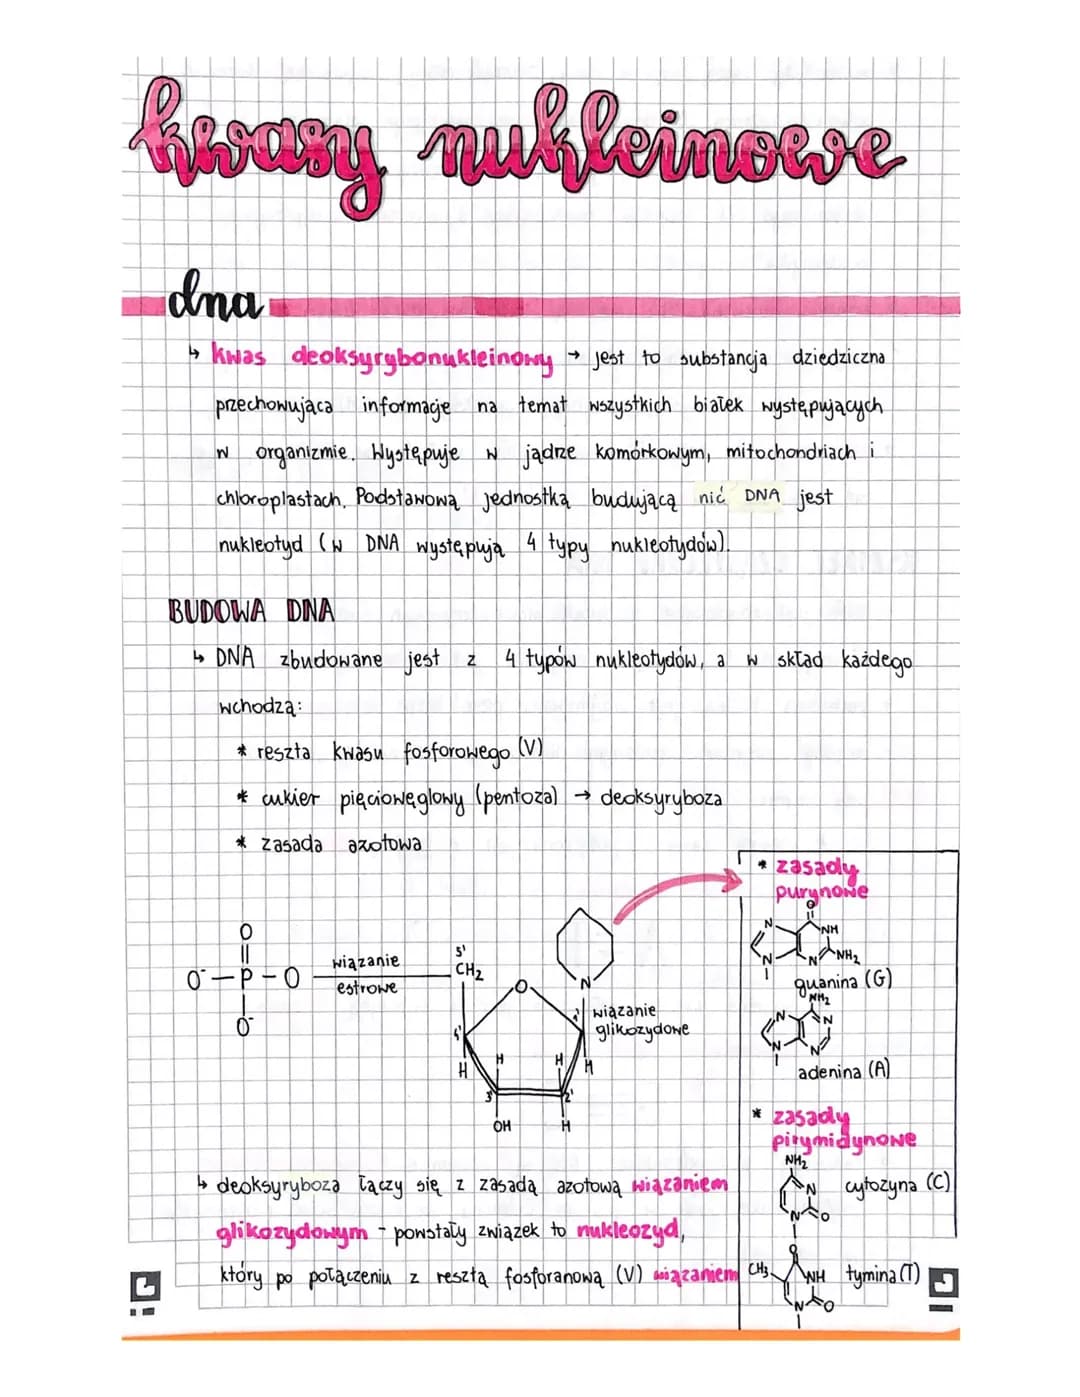 kwasy nukleinowe
dna
↳ kwas deoksyrybonukleinowy → jest to substancja dziedziczna
przechowująca informacje na temat wszystkich białek występujących
w organizmie. Występuje w jądrze komórkowym, mitochondriach i
chloroplastach. Podstawową jednostką budującą nić DNA jest
nukleotyd (w DNA występują 4 typy nukleotydów).
BUDOWA DNA
↳ DNA zbudowane jest z 4 typów nukleotydów, a w skład każdego
wchodzą:
* reszta kwasu fosforowego (V)
* cukier pięciowęglowy (pentoza) → deoksyryboza
* zasada azotowa
O
O⁻ — P — O
O⁻
wiązanie
estrowe
5'
CH₂
O
N
1'
wiązanie
glikozydowe
4'
H
H
H
H
3'
2'
OH
H
* zasady
purynowe
O
N
NH
N
N
NH₂
guanina (G)
NH₂
N
N
N
N
adenina (A)
* zasady
pirymidynowe
NH₂
N
N
O
cytozyna (C)
O
CH₃
NH
N
O
tymina (T)
↳ deoksyryboza łączy się z zasadą azotową wiązaniem
glikozydowym - powstały związek to nukleozyd,
który po połączeniu z resztą fosforanową (V) wiązaniem